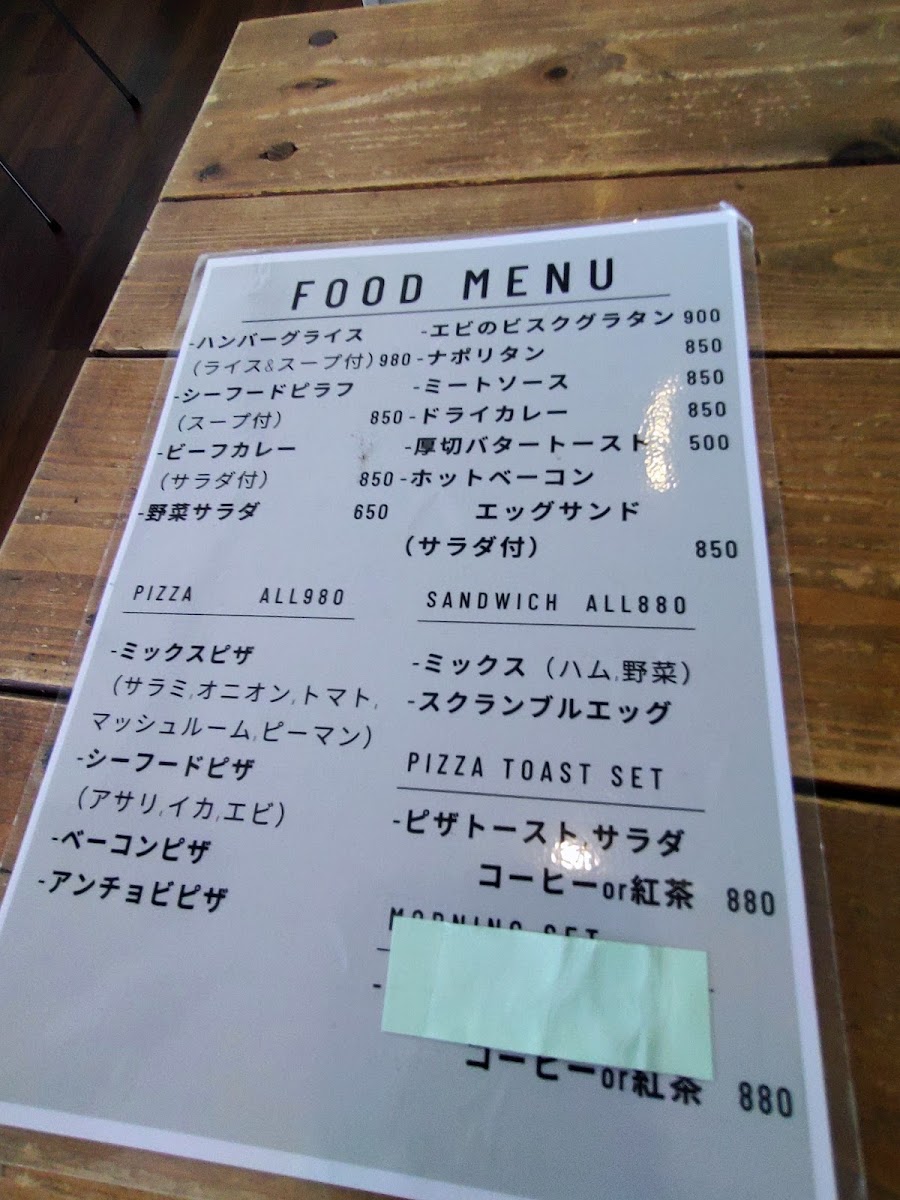 FOOD MENU
-ハンバーグライス
(ライス&スープ付) 980
-シーフードピラフ
(スープ付) 850
-ビーフカレー
(サラダ付) 850
-野菜サラダ 650
-エビのビスクグラタン 900
-ナポリタン 850
-ミートソース 850
-ドライカレー 850
-厚切バタートースト 500
-ホットベーコン
エッグサンド
(サラダ付) 850
PIZZA ALL980
-ミックスピザ
(サラミ,オニオン,トマト,
マッシュルーム,ピーマン)
-シーフードピザ
(アサリ,イカ,エビ)
-ベーコンピザ
-アンチョビピザ
SANDWICH ALL880
-ミックス (ハム,野菜)
-スクランブルエッグ
PIZZA TOAST SET
-ピザトースト,サラダ
コーヒーor紅茶 880
MORNING SET
-
コーヒーor紅茶 880